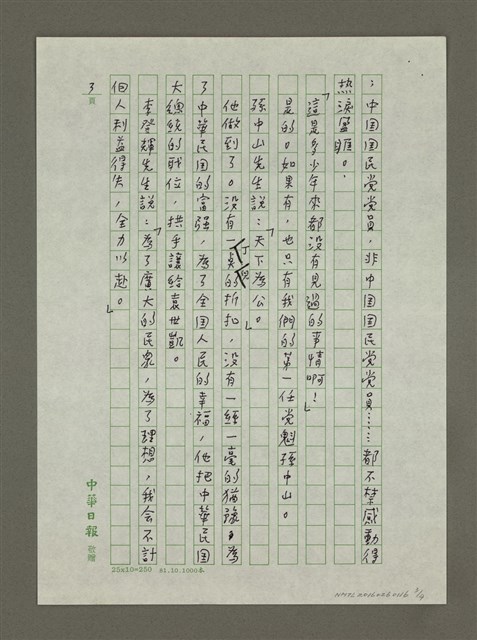 ：中国国民党党員，非中国国民党党員……都不禁感動得
热淚盈眶。
「這是多少年來都没有見過的事情啊！」
是的。如果有，也只有我們的第一任党魁孫中山。
孫中山先生説：「天下為公。」
他做到了。没有一丁兒的折扣，没有一絲一毫的猶豫，為
了中華民国的富强，為了全国人民的幸福，他把中華民国
大總統的職位，拱手讓給袁世凱。
李登輝先生説：「為了廣大的民衆，為了理想，我会不計
個人利益得失，全力以赴。」
3頁
中華日報 敬贈
25x10=250 81.10.1000本